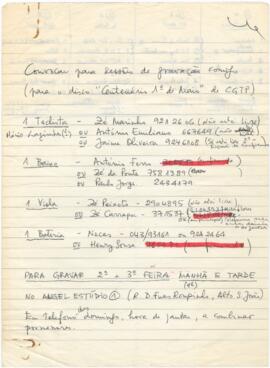 Convocar para sessões de gravação comigo
(para o disco "Centenário 1º de Maio" da CGTP)
1 Teclista - Zé Marinho 922606
Mário Laginha(?) ou António Emiliano 667649
ou Jaime Oliveira 9246008
1 Baixo - António Ferro
ou Zé da Ponte 7581389
ou Paulo Jorge 2484179
1 Viola - Zé Peixoto - 2904895
ou Zé Carrapa - 371537
1 Bateria - Necas - 043/93161 ou
ou Henry Sousa
PARA GRAVAR 2ª e 3ª FEIRA MANHÃ E TARDE
NO ANGEL ESTÚDIO ① (R. D. Fuas Roupinho, Alto S. João)
Eu telefono domingo, hora de jantar, a combinar
pormenores.